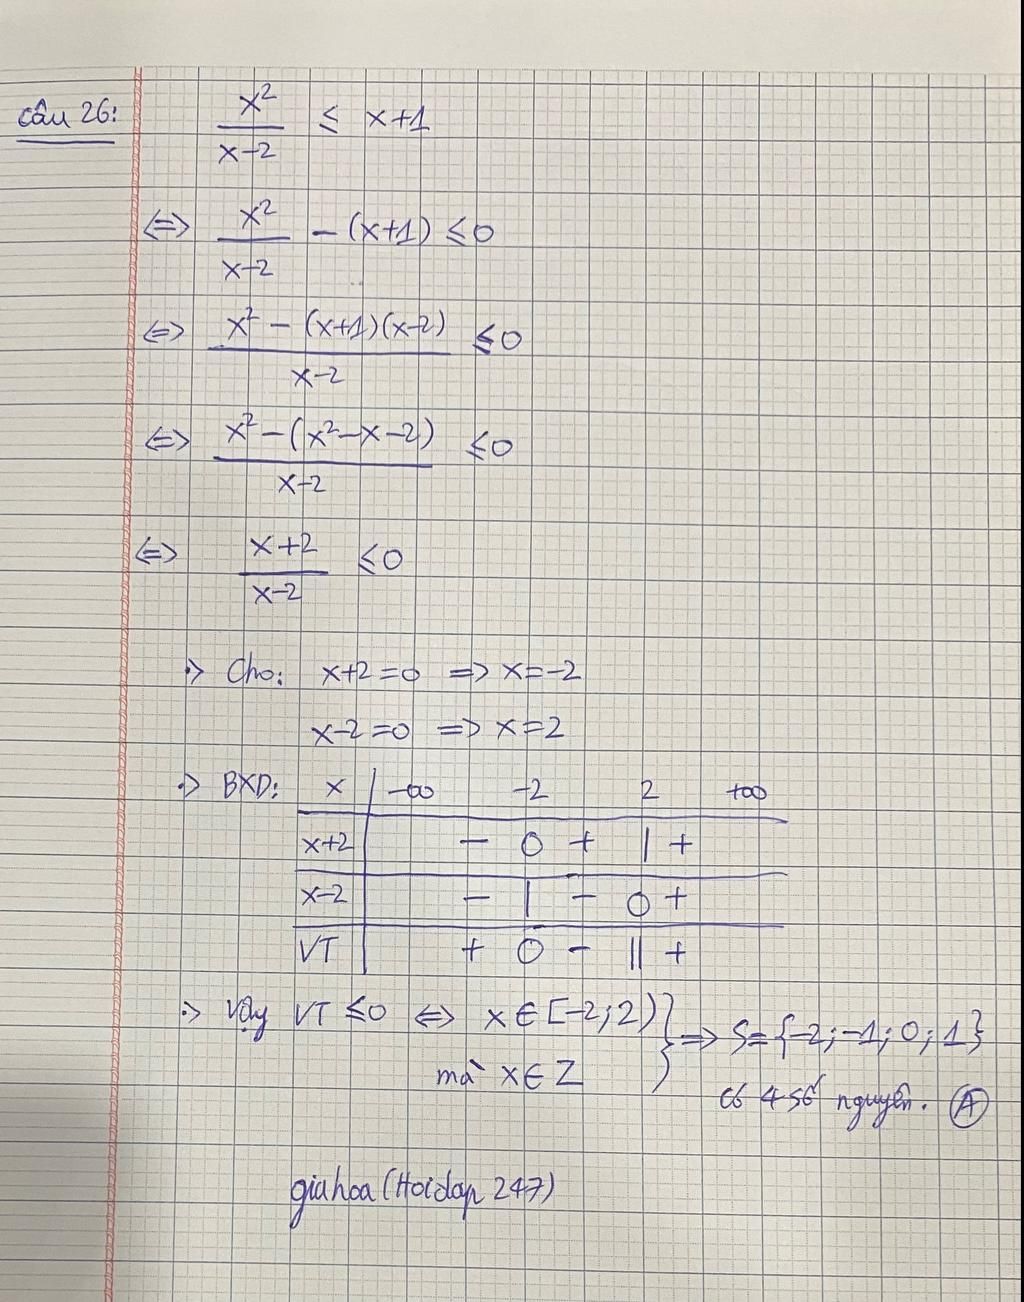 Câu 26: x² / x-2 ≤ x+1
<=> x² / x-2 - (x+1) ≤ 0
<=> x² - (x+1)(x-2) / x-2 ≤ 0
<=> x² - (x² - x - 2) / x-2 ≤ 0
<=> x+2 / x-2 ≤ 0
·> Cho: x+2 = 0 => x = -2
x-2 = 0 => x = 2
·> BXD: x | -∞ -2 2 +∞
x+2 | - 0 + | +
x-2 | - | - 0 +
VT | + 0 - || +
·> Vậy VT ≤ 0 <=> x ∈ [-2; 2) } => S = {-2; -1; 0; 1}
mà x ∈ Z
có 4 số nguyên. A
giahoa (Hoidap 247)